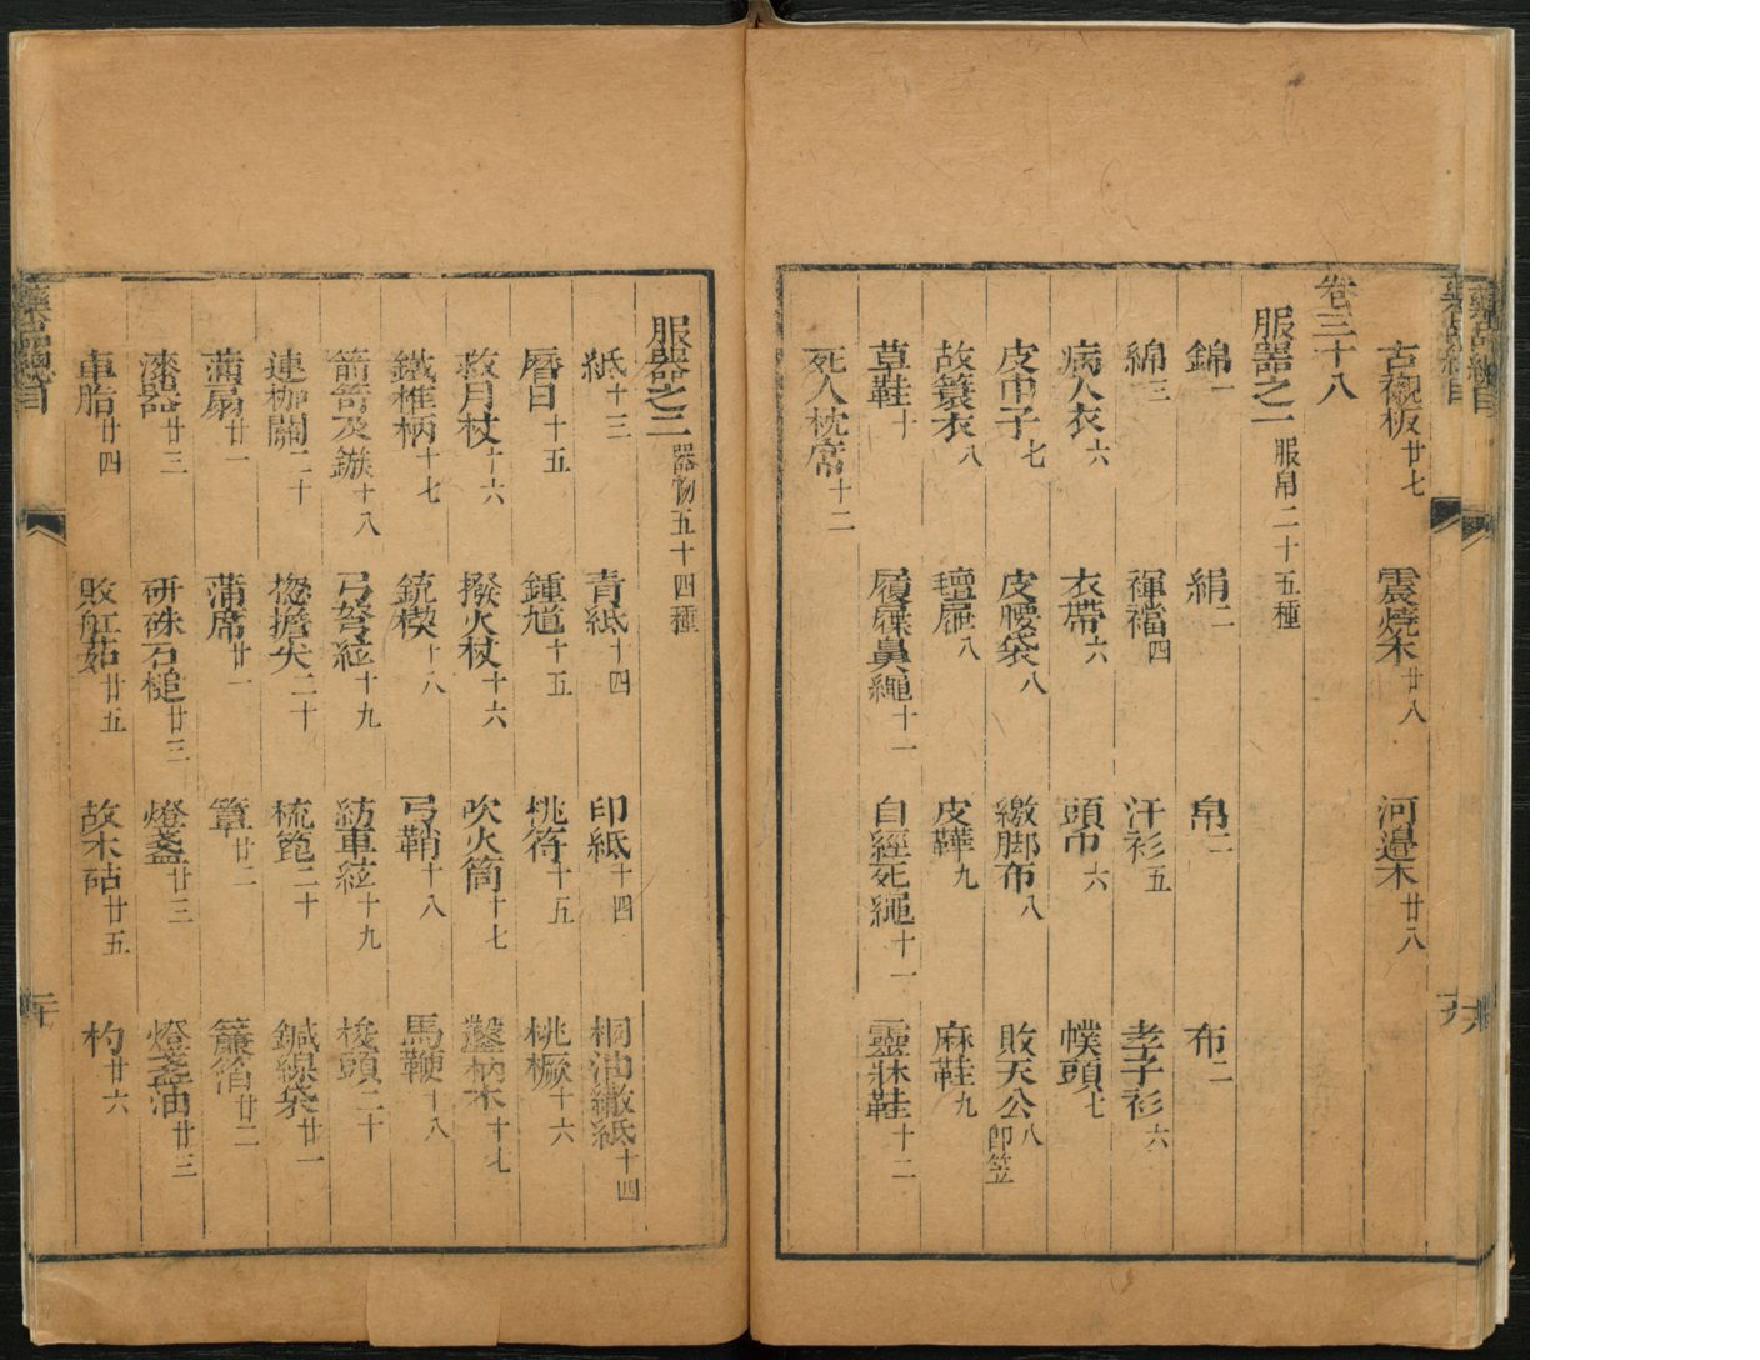 古櫬板廿七 震燒木廿八 河邊木廿八
卷三十八
服器之一服帛二十五種
錦一 絹二 帛二 布二
綿三 褌襠四 汗衫五 孝子衫六
病人衣六 衣帶六 頭巾六 幞頭七
皮巾子七 皮腰袋八 繳脚布八 敗天公八即笠
故蓑衣八 氊屜八 皮鞾九 麻鞋九
草鞋十 屨屧鼻繩十一 自經死繩十一 靈牀鞋十二
死人枕席十二
服器之二器物五十四種
紙十三 青紙十四 印紙十四 桐油繖紙十四
曆日十五 鍾馗十五 桃符十五 桃橛十六
救月杖十六 撥火杖十六 吹火筒十七 鑿柄木十七
鐵椎柄十七 銃楔十八 弓鞘十八 馬鞭十八
箭笴及鏃十八 弓弩絃十九 紡車絃十九 梭頭二十
連枷關二十 楤擔尖二十 梳篦二十 鍼線袋廿一
蒲扇廿一 蒲席廿一 簟廿二 簾箔廿二
漆器廿三 研硃石槌廿三 燈盞廿三 燈盞油廿三
車脂廿四 敗舡茹廿五 故木砧廿五 杓廿六
藥品總目